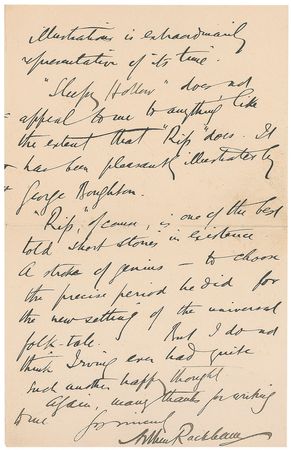 illustrations is extraordinarily
representative of its time.
"Sleepy Hollow" does not
appeal to me to anything like
the extent that "Rip" does. It
has been pleasantly illustrated by
George Boughton.
"Rip," of course, is one of the best
told "short stories" in existence
A stroke of genius — to choose
the precise period he did for
the new setting of the universal
folk-tale. But I do not
think Irving ever had quite
such another happy thought.
Again, many thanks for writing
to me
Arthur Rackham